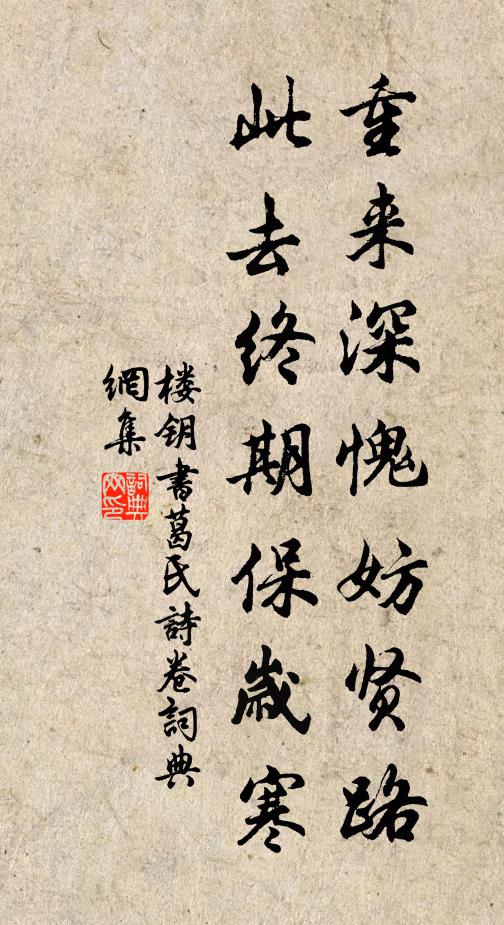 重来深愧妨贤路
此去终期保歲寒
楼钥書葛民詩卷詞典
網集
詞典
网印